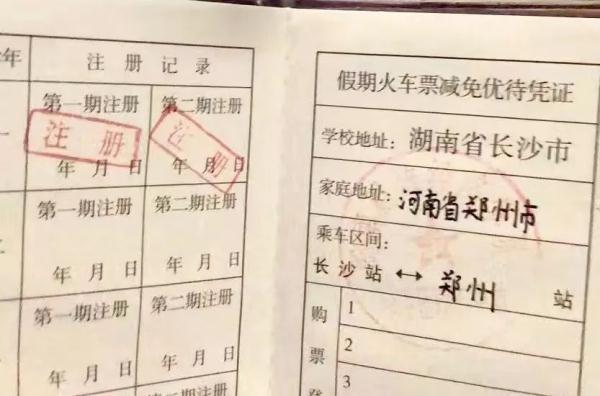 年
注册记录
第一期注册 第二期注册
注册 注册
年 月 日 年 月 日
第一期注册 第二期注册
年 月 日 年 月 日
第一期注册 第二期注册
年 月 日 年 月 日
第一期注册 第二期注册
假期火车票减免优待凭证
学校地址：湖南省长沙市
家庭地址：河南省郑州市
乘车区间：
长沙站 ↔ 郑州 站
购票
1
2
3